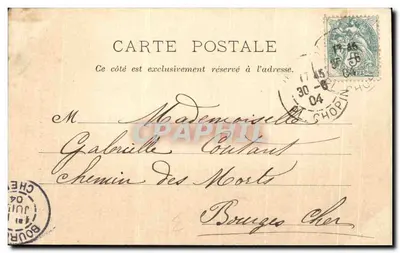 CARTE POSTALE
Ce côté est exclusivement réservé à l'adresse.
17 45
30 - 6
04
CHOPIN
M Mademoiselle
CPAPHIL
Gabrielle Coutant
Chemin des Morts
Bourges Cher
BOUR
CHE
JUI
04